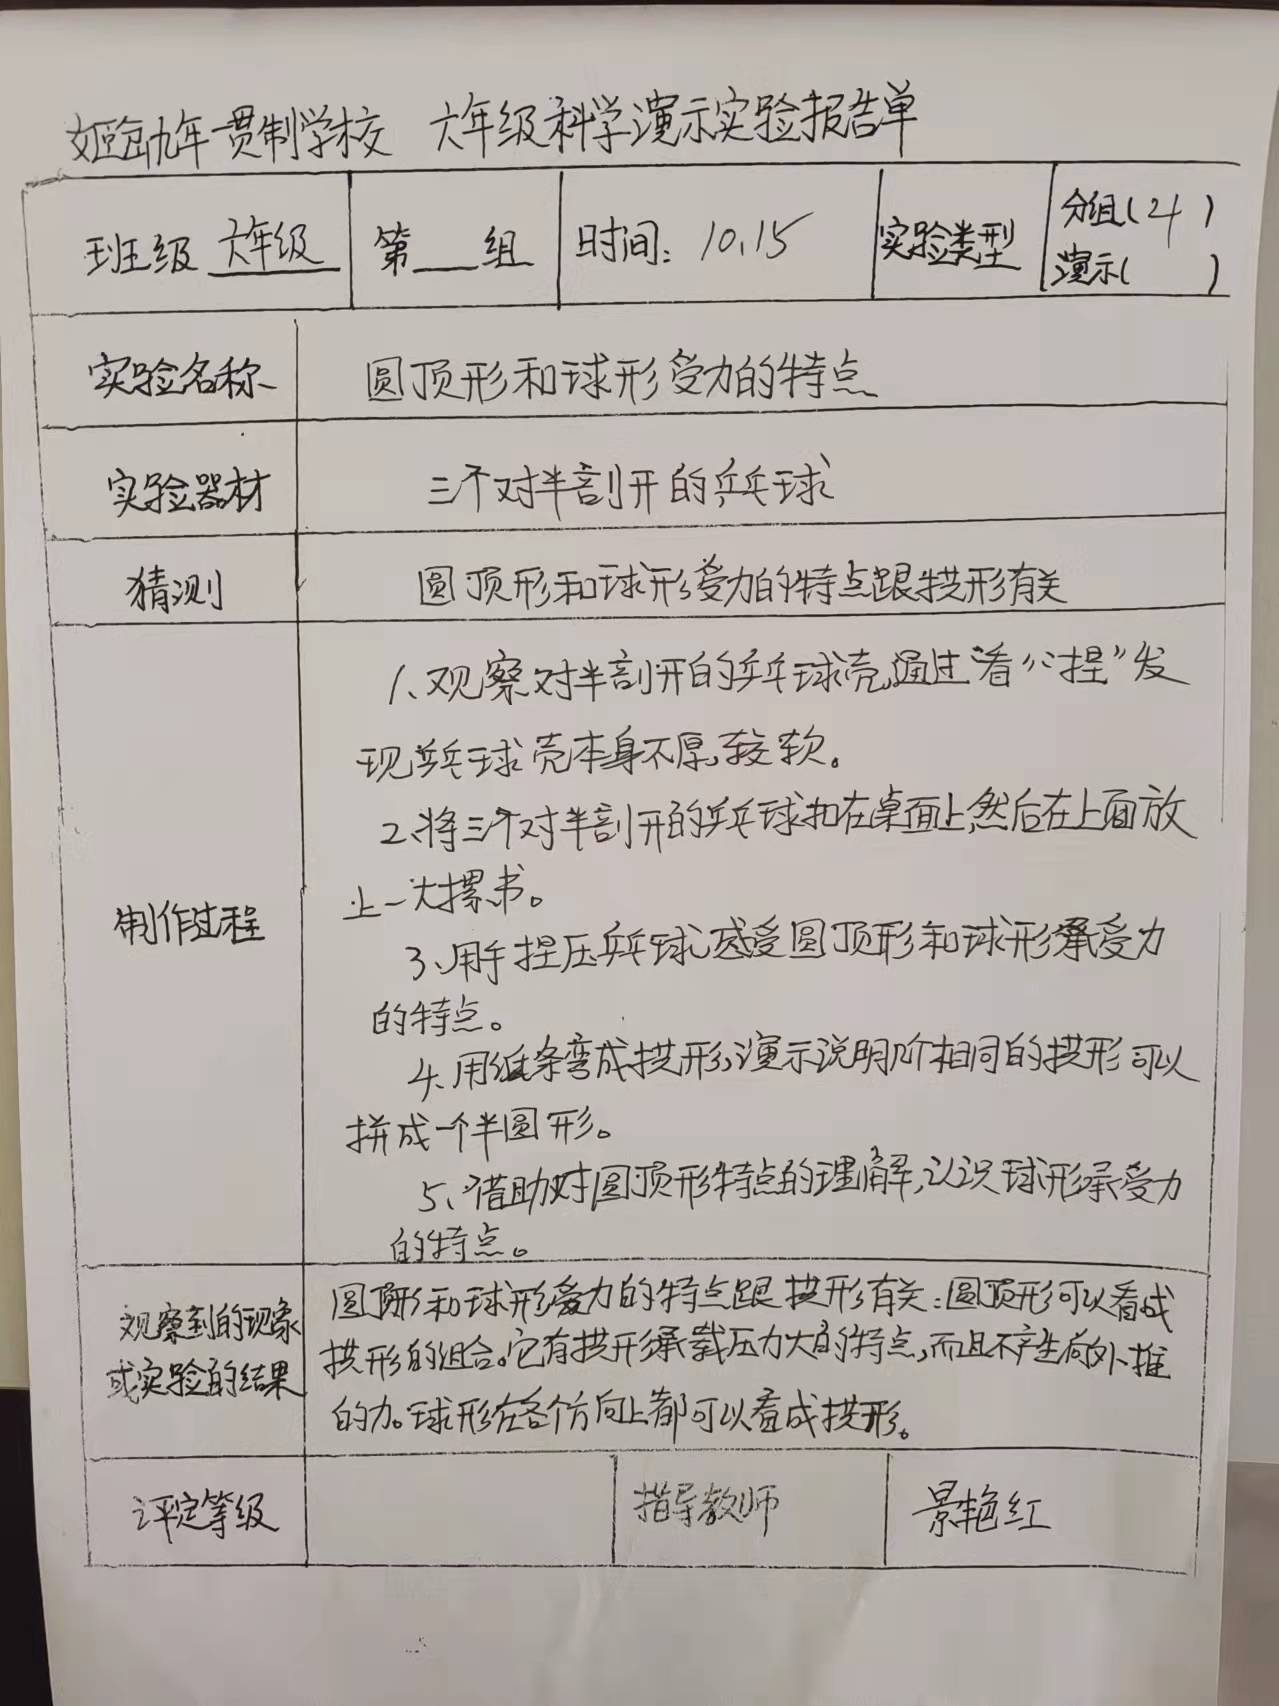 姬家九年一贯制学校 六年级科学演示实验报告单
班级 六年级 第___组 时间：10.15 实验类型 分组（4）
演示（ ）
实验名称 圆顶形和球形受力的特点
实验器材 三个对半剖开的乒乓球
猜测 圆顶形和球形受力的特点跟拱形有关
1、观察对半剖开的乒乓球壳，通过“看”“捏”发
现乒乓球壳本身不厚，较软。
2、将三个对半剖开的乒乓球扣在桌面上，然后在上面放
上一大摞书。
制作过程
3、用手捏压乒乓球，感受圆顶形和球形承受力
的特点。
4、用纸条弯成拱形，演示说明几个相同的拱形可以
拼成一个半圆形。
5、借助对圆顶形特点的理解，认识球形承受力
的特点。
观察到的现象
或实验的结果
圆顶形和球形受力的特点跟拱形有关：圆顶形可以看成
拱形的组合。它有拱形承载压力大的特点，而且不产生向外推
的力。球形在各个方向上都可以看成拱形。
评定等级 指导教师 景艳红